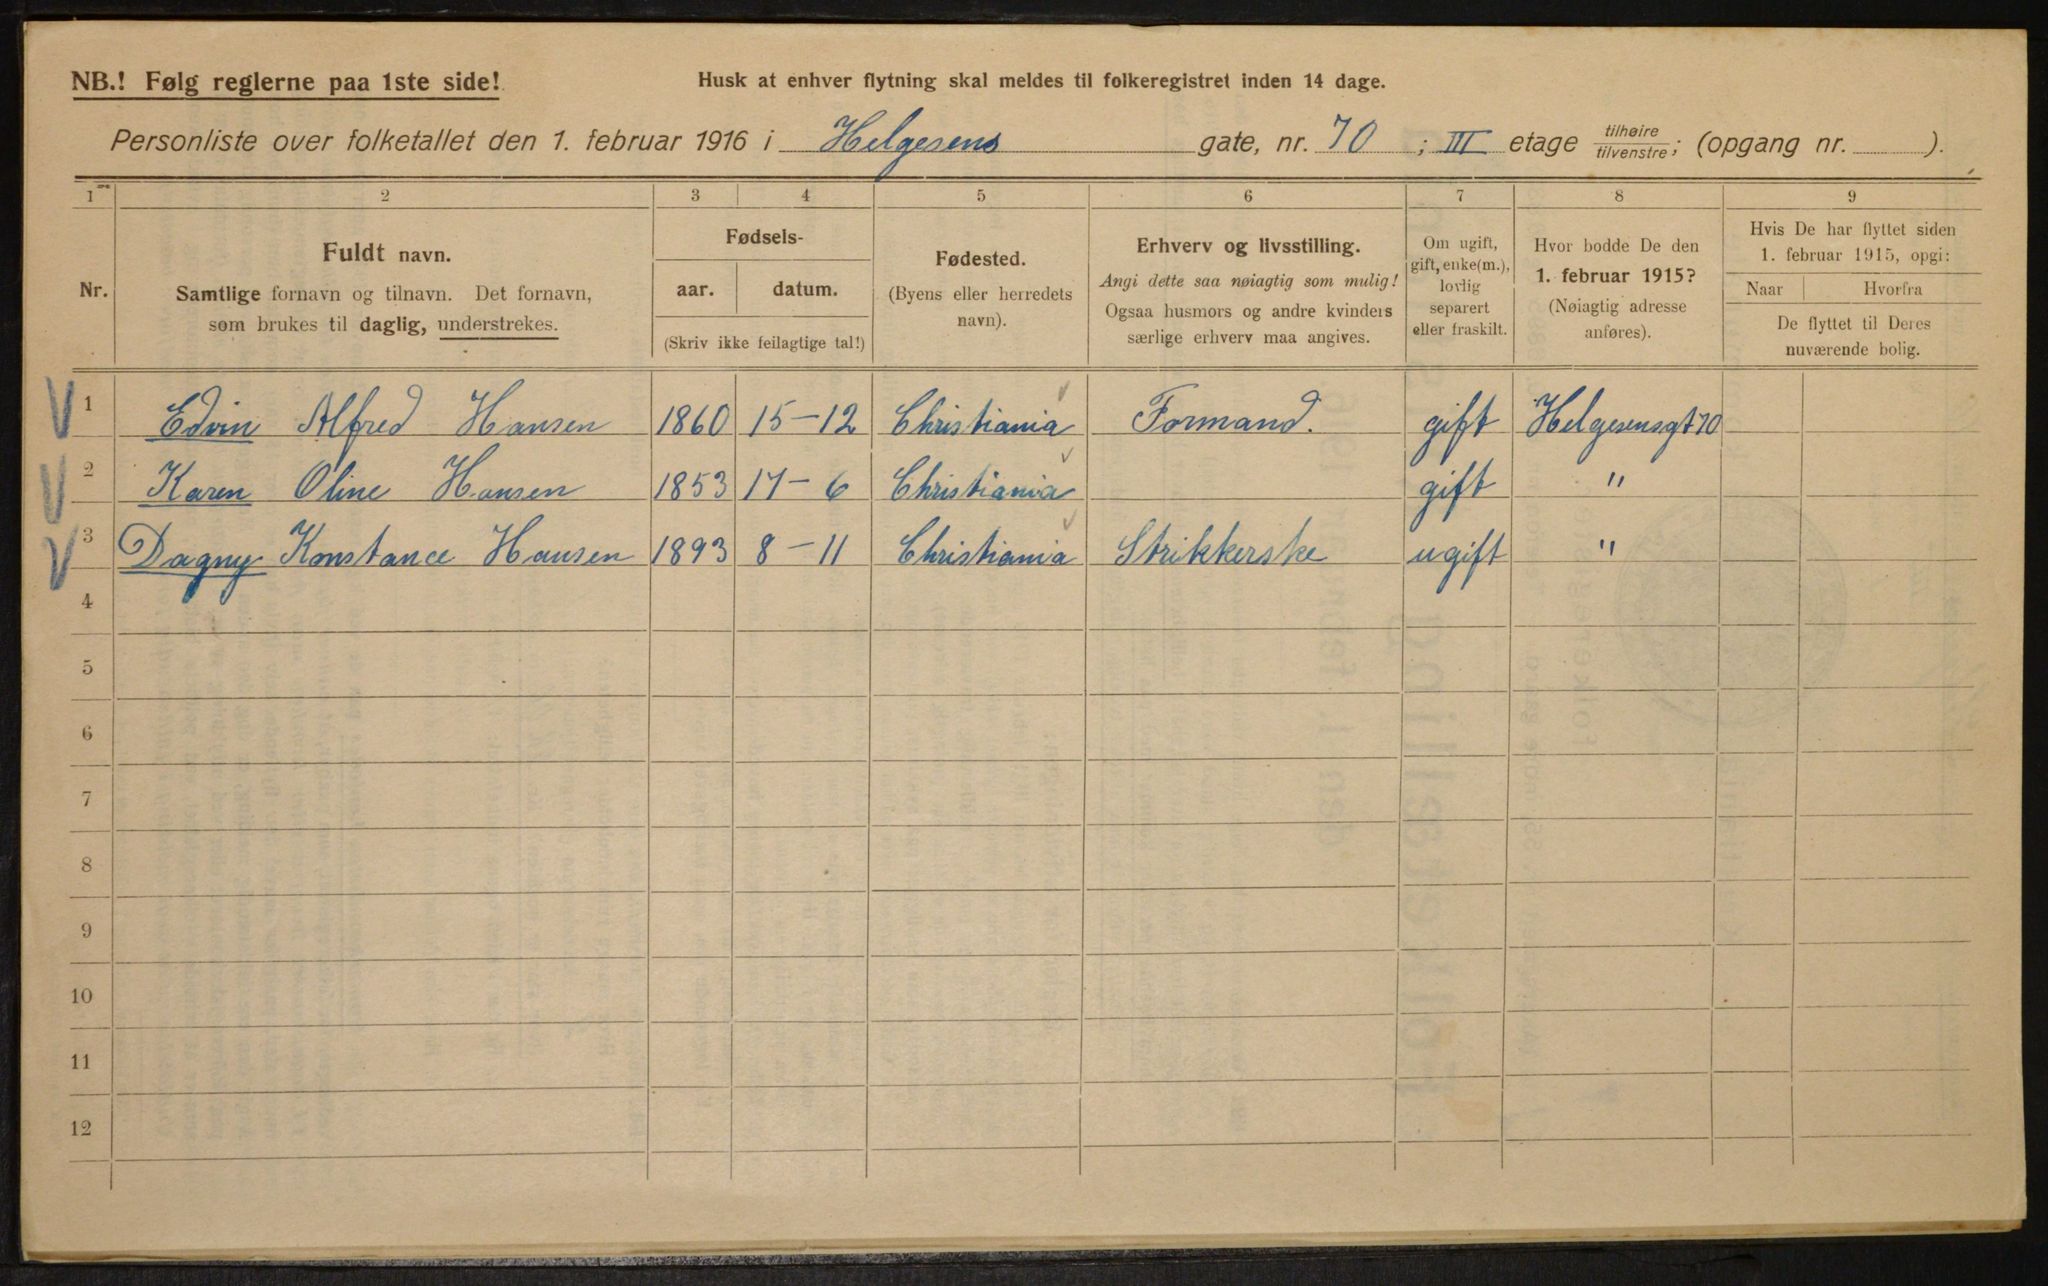 NB.! Følg reglerne paa 1ste side! Husk at enhver flytning skal meldes til folkeregistret inden 14 dage.
Personliste over folketallet den 1. februar 1916 i Helgesens gate, nr. 70 ; III etage tilhøire/tilvenstre; (opgang nr. ).
1 2 3 4 5 6 7 8 9
Nr.
Fuldt navn.
Samtlige fornavn og tilnavn. Det fornavn,
som brukes til daglig, understrekes.
Fødsels-
aar. datum.
(Skriv ikke feilagtige tal!)
Fødested.
(Byens eller herredets
navn).
Erhverv og livsstilling.
Angi dette saa nøiagtig som mulig!
Ogsaa husmors og andre kvinders
særlige erhverv maa angives.
Om ugift,
gift, enke(m.),
lovlig
separert
eller fraskilt.
Hvor bodde De den
1. februar 1915?
(Nøiagtig adresse
anføres).
Hvis De har flyttet siden
1. februar 1915, opgi:
Naar Hvorfra
De flyttet til Deres
nuværende bolig.
1 Edvin Alfred Hansen 1860 15-12 Christiania Formand. gift Helgesensgt 70
2 Karen Oline Hansen 1853 17-6 Christiania gift "
3 Dagny Konstance Hansen 1893 8-11 Christiania Strikkerske ugift "
4
5
6
7
8
9
10
11
12